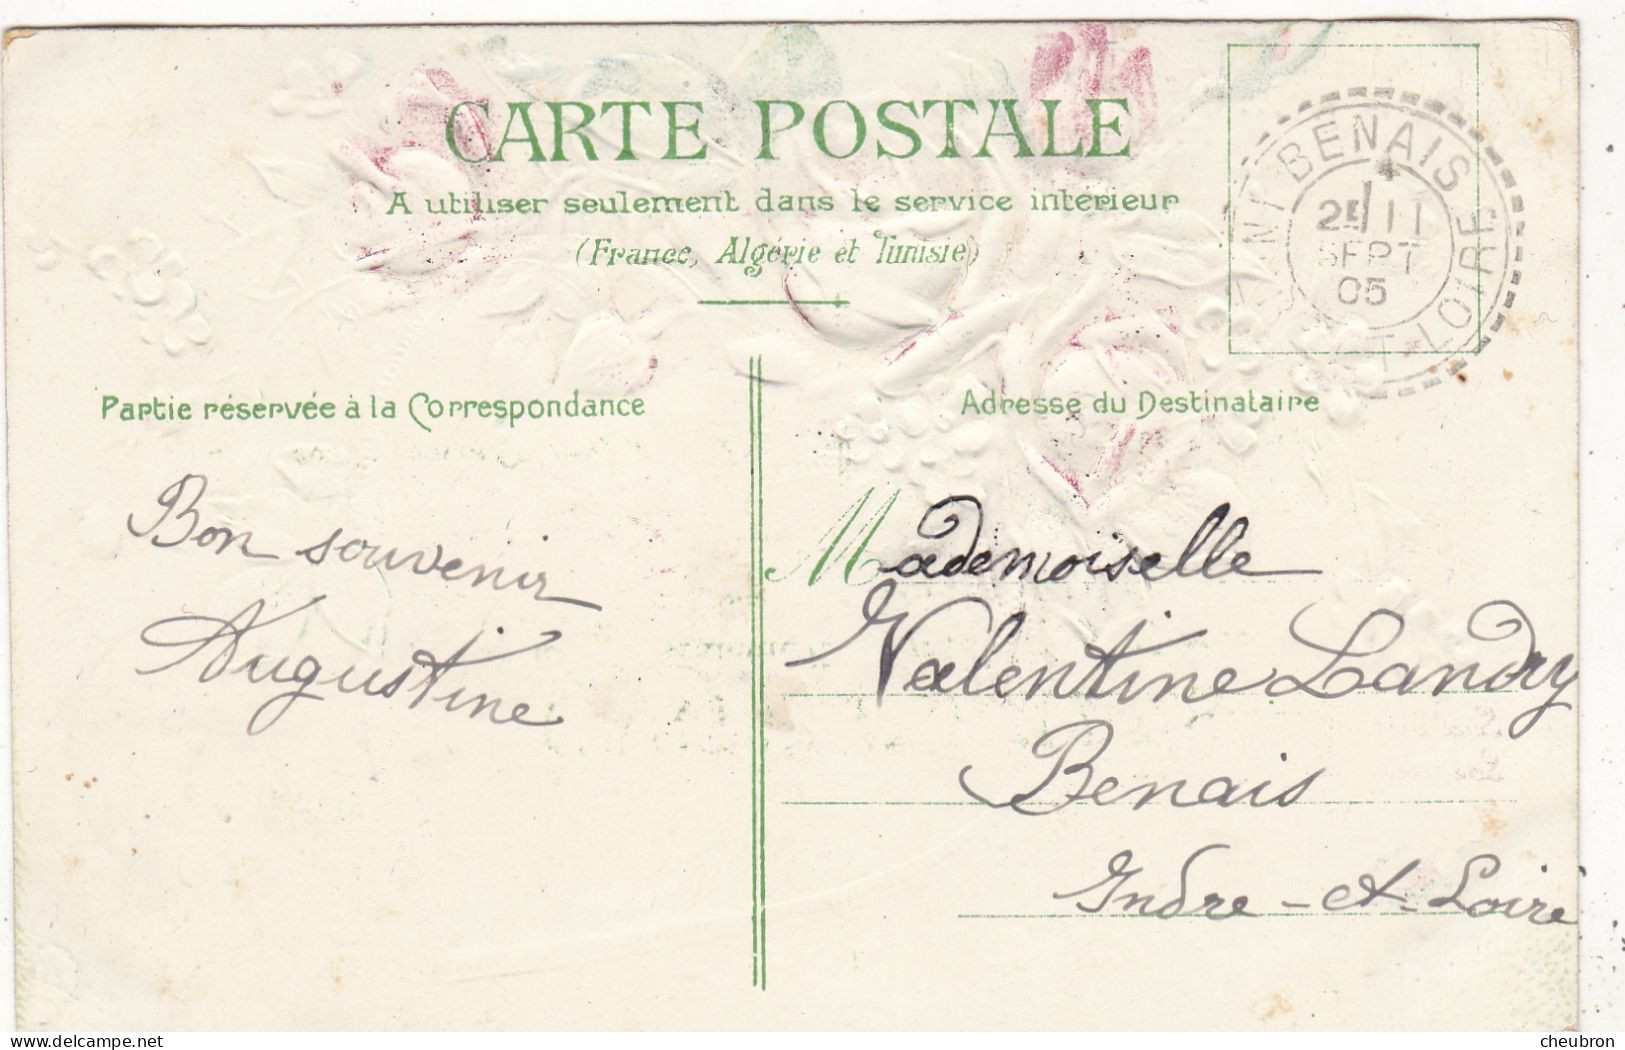 CARTE POSTALE
A utiliser seulement dans le service intérieur
(France, Algérie et Tunisie)
BENAIS
2E 11
SEPT
05
LOIRE
Partie réservée à la Correspondance
Adresse du Destinataire
Bon souvenir
Augustine
Mademoiselle
Valentine Landry
Benais
Indre-et-Loire
delcampe.net
cheubron